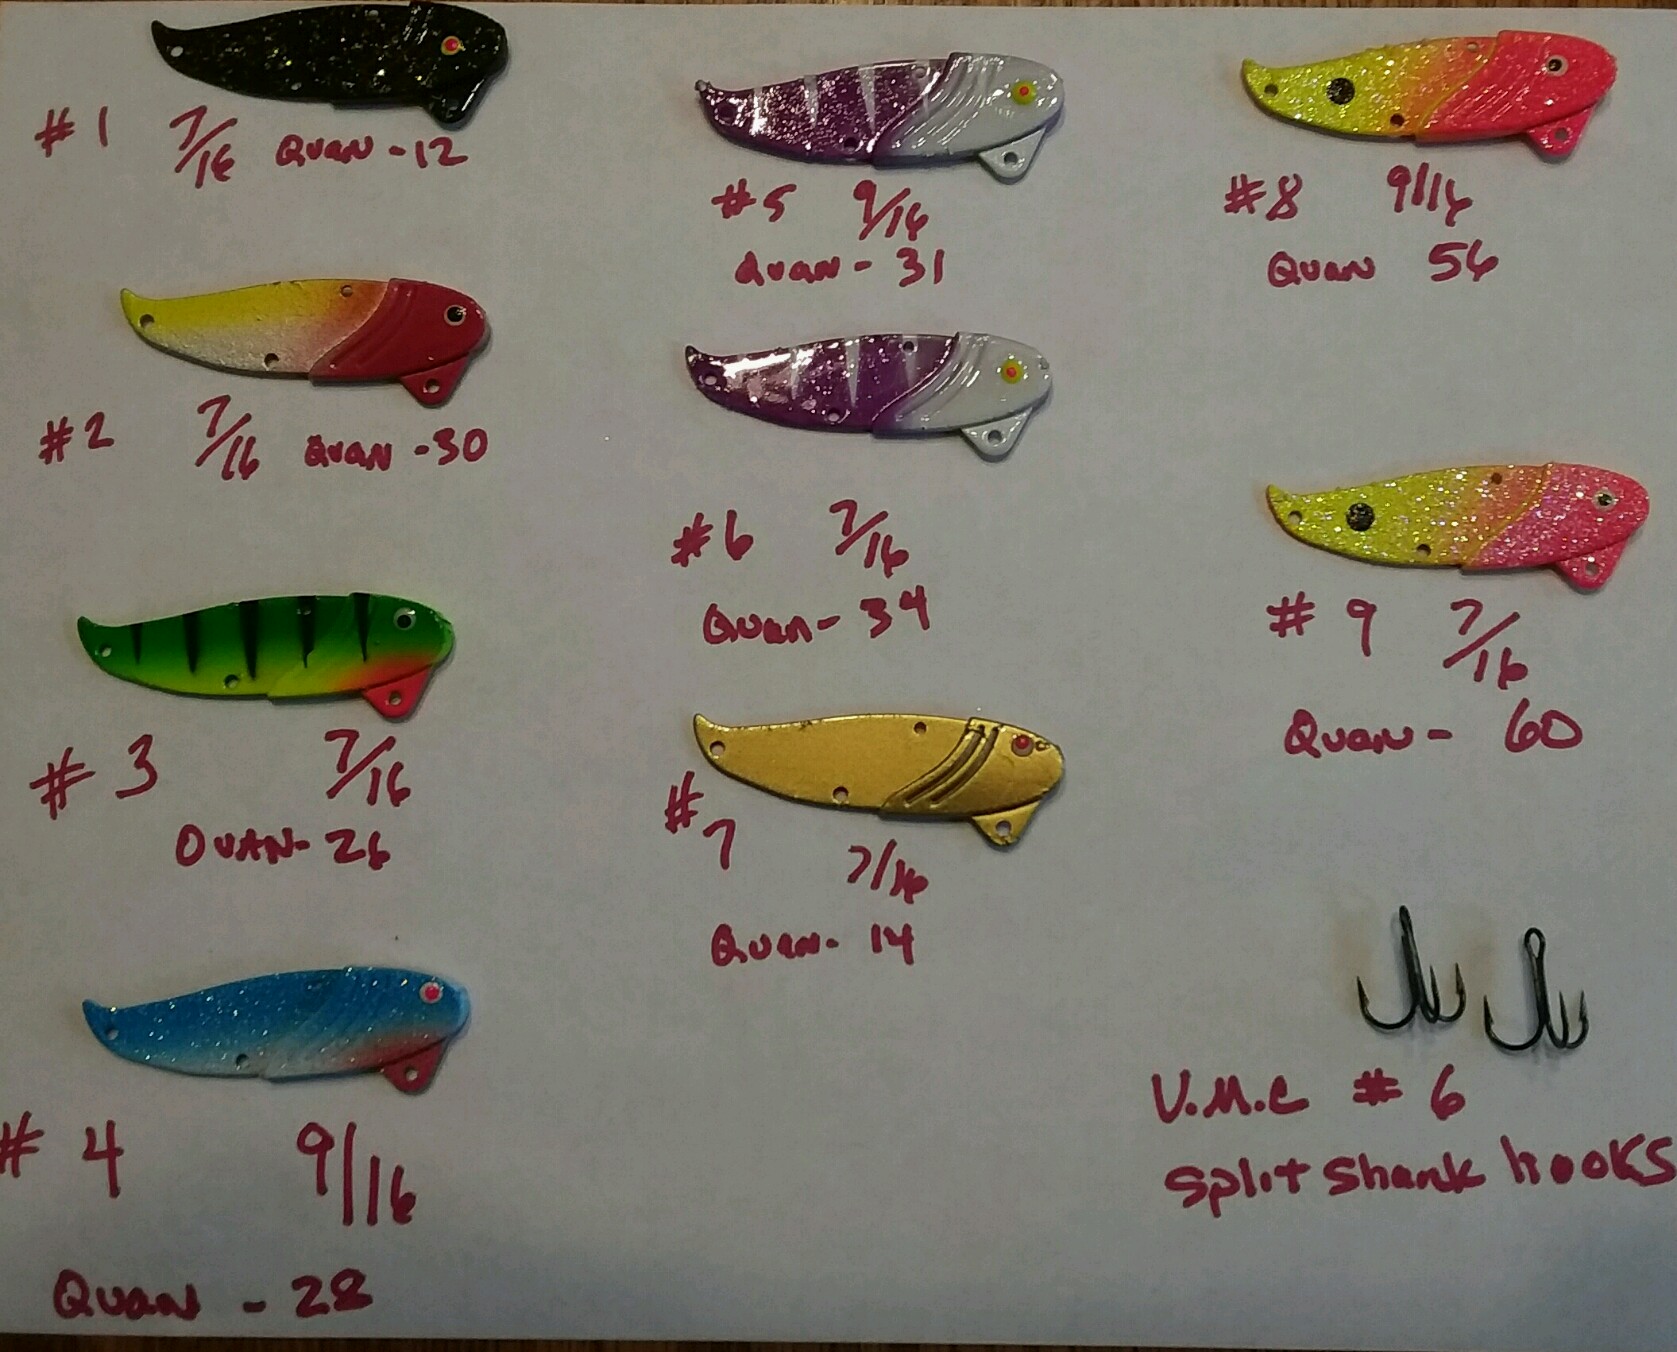 #1 7/16 Quan -12
#2 7/16 Quan -30
#3 7/16
QUAN- 26
#4 9/16
Quan - 28
#5 9/16
Quan - 31
#6 7/16
Quan- 34
#7 7/16
Quan- 14
#8 9/16
Quan 56
#9 7/16
Quan- 60
V.M.C #6
Split Shank hooks